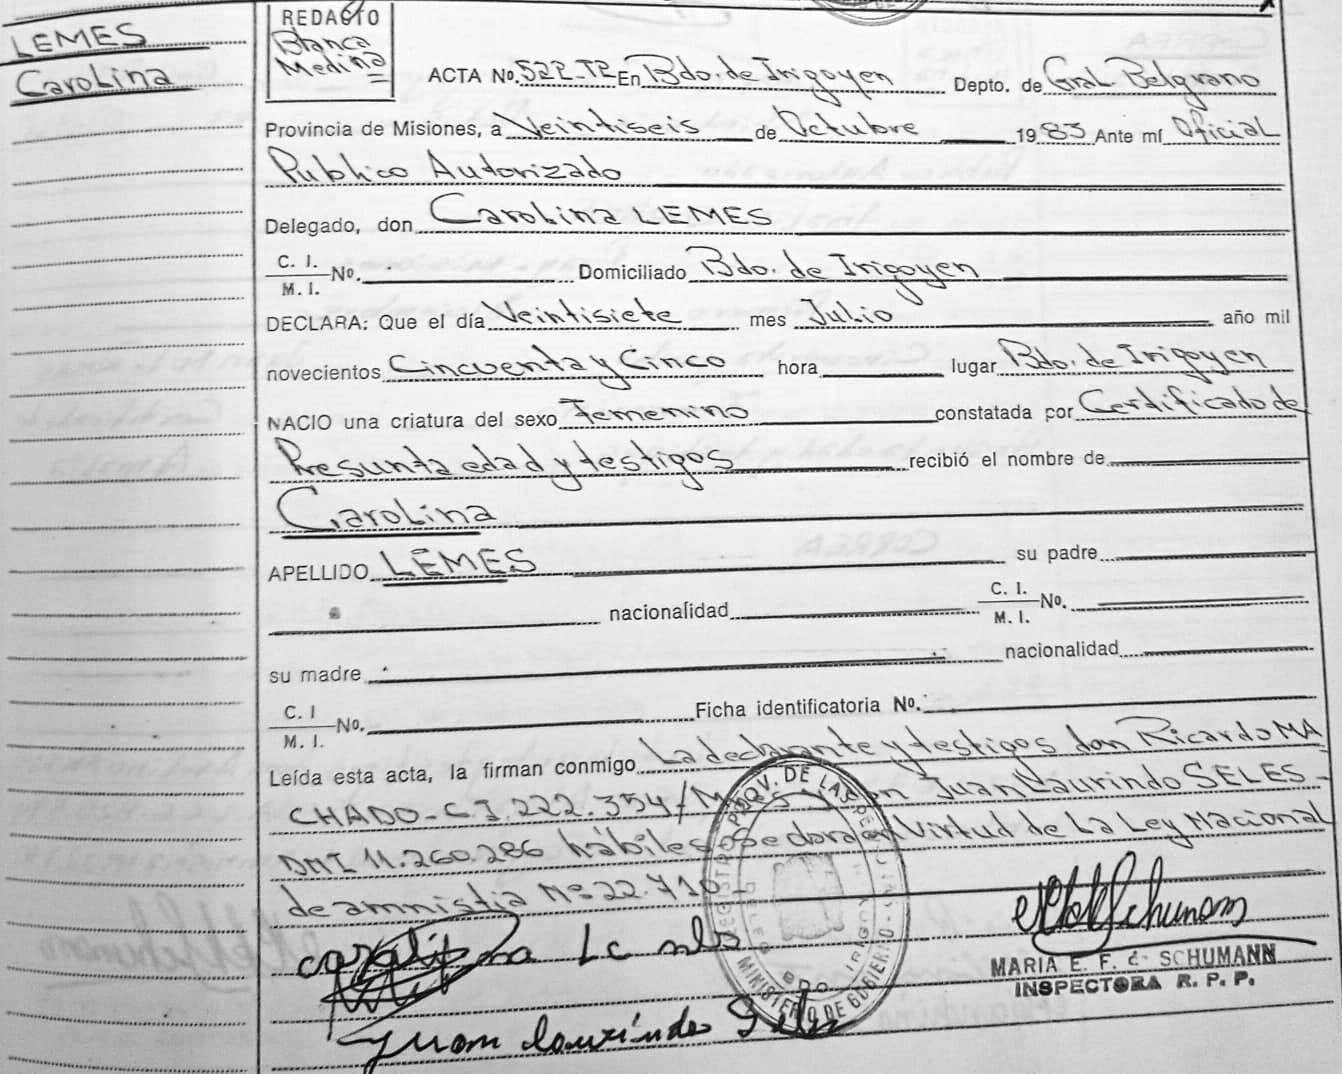 LEMES
Carolina
REDACTO
Blanca
Medina
ACTA No. 522-T2- En Bdo. de Irigoyen Depto. de Gral. Belgrano
Provincia de Misiones, a Veintiseis de Octubre 1983 Ante mí Oficial
Publico Autorizado
Delegado, don Carolina LEMES
C. I.
M. I. No. Domiciliado Bdo. de Irigoyen
DECLARA: Que el día Veintisiete mes Julio año mil
novecientos Cincuenta y Cinco hora lugar Bdo. de Irigoyen
NACIO una criatura del sexo Femenino constatada por Certificado de
Presunta edad y testigos recibió el nombre de
Carolina
APELLIDO LEMES su padre
nacionalidad C. I.
M. I. No.
su madre nacionalidad
C. I
M. I. No. Ficha identificatoria No.
Leída esta acta, la firman conmigo La declarante y testigos don Ricardo MA
CHADO - C I. 222.354/M don Juan Laurindo SELES -
DNI 11.260.286 hábiles en Virtud de La Ley Nacional
de amnistia Nº 22.710 -
REGISTRO PROV. DE LAS PERSONAS
MINISTERIO DE GOBIERNO
BDO. IRIGOYEN
MARIA E. F. de SCHUMANN
INSPECTORA R. P. P.
Juan laurindo Seles